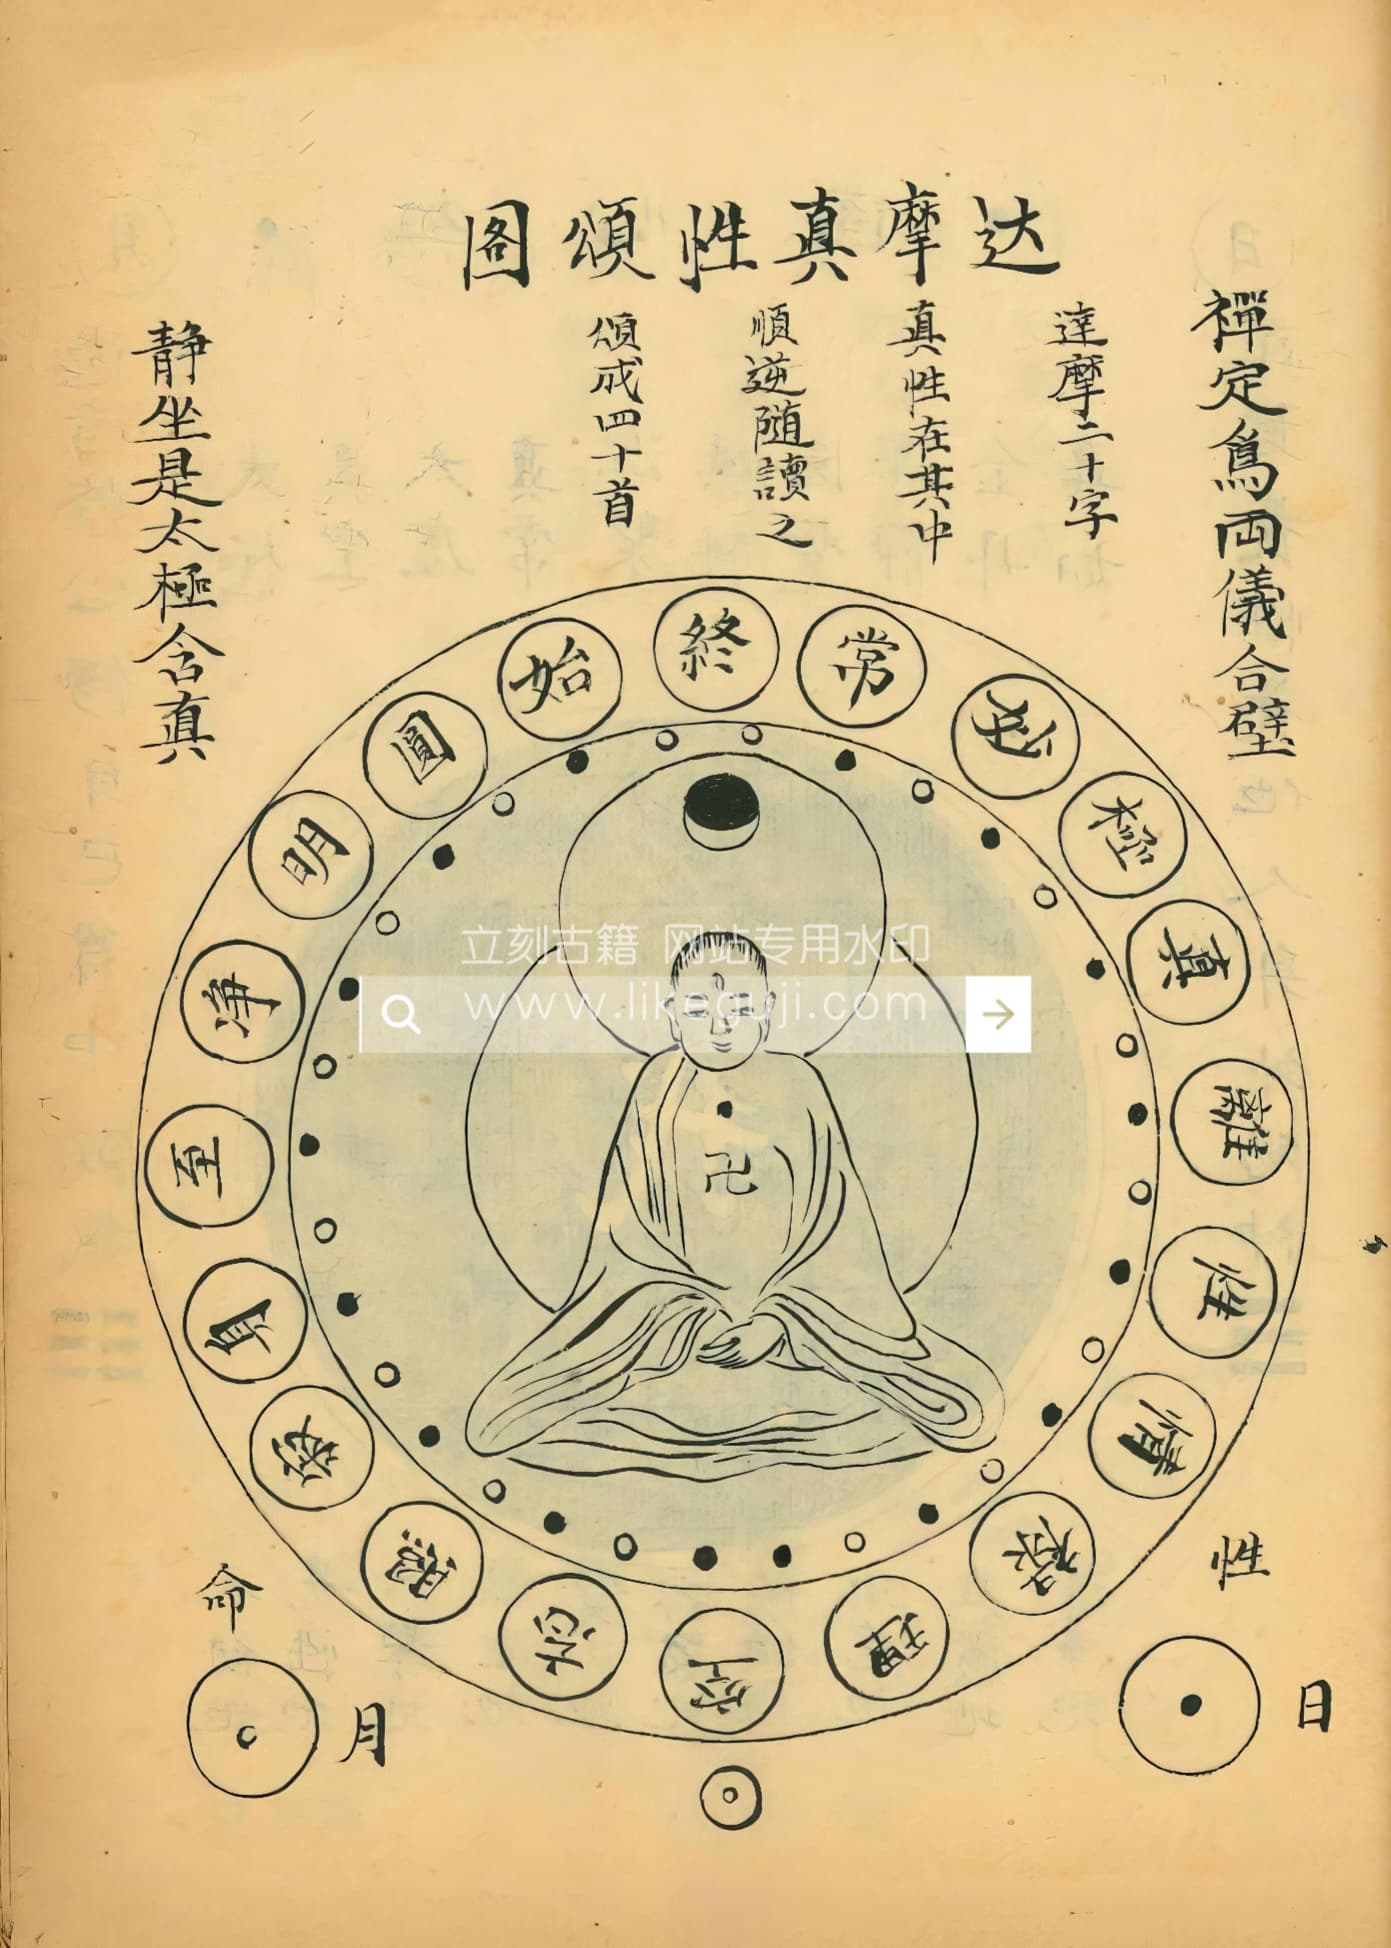 达摩真性頌图
禪定爲兩儀合璧
達摩二十字
真性在其中
順逆随讀之
頌成四十首
静坐是太極含真
終
常
極
真
離
性
情
理
空
忘
照
寂
身
至
淨
明
圓
始
卍
性
日
命
月
立刻古籍 网站专用水印
www.likeguji.com